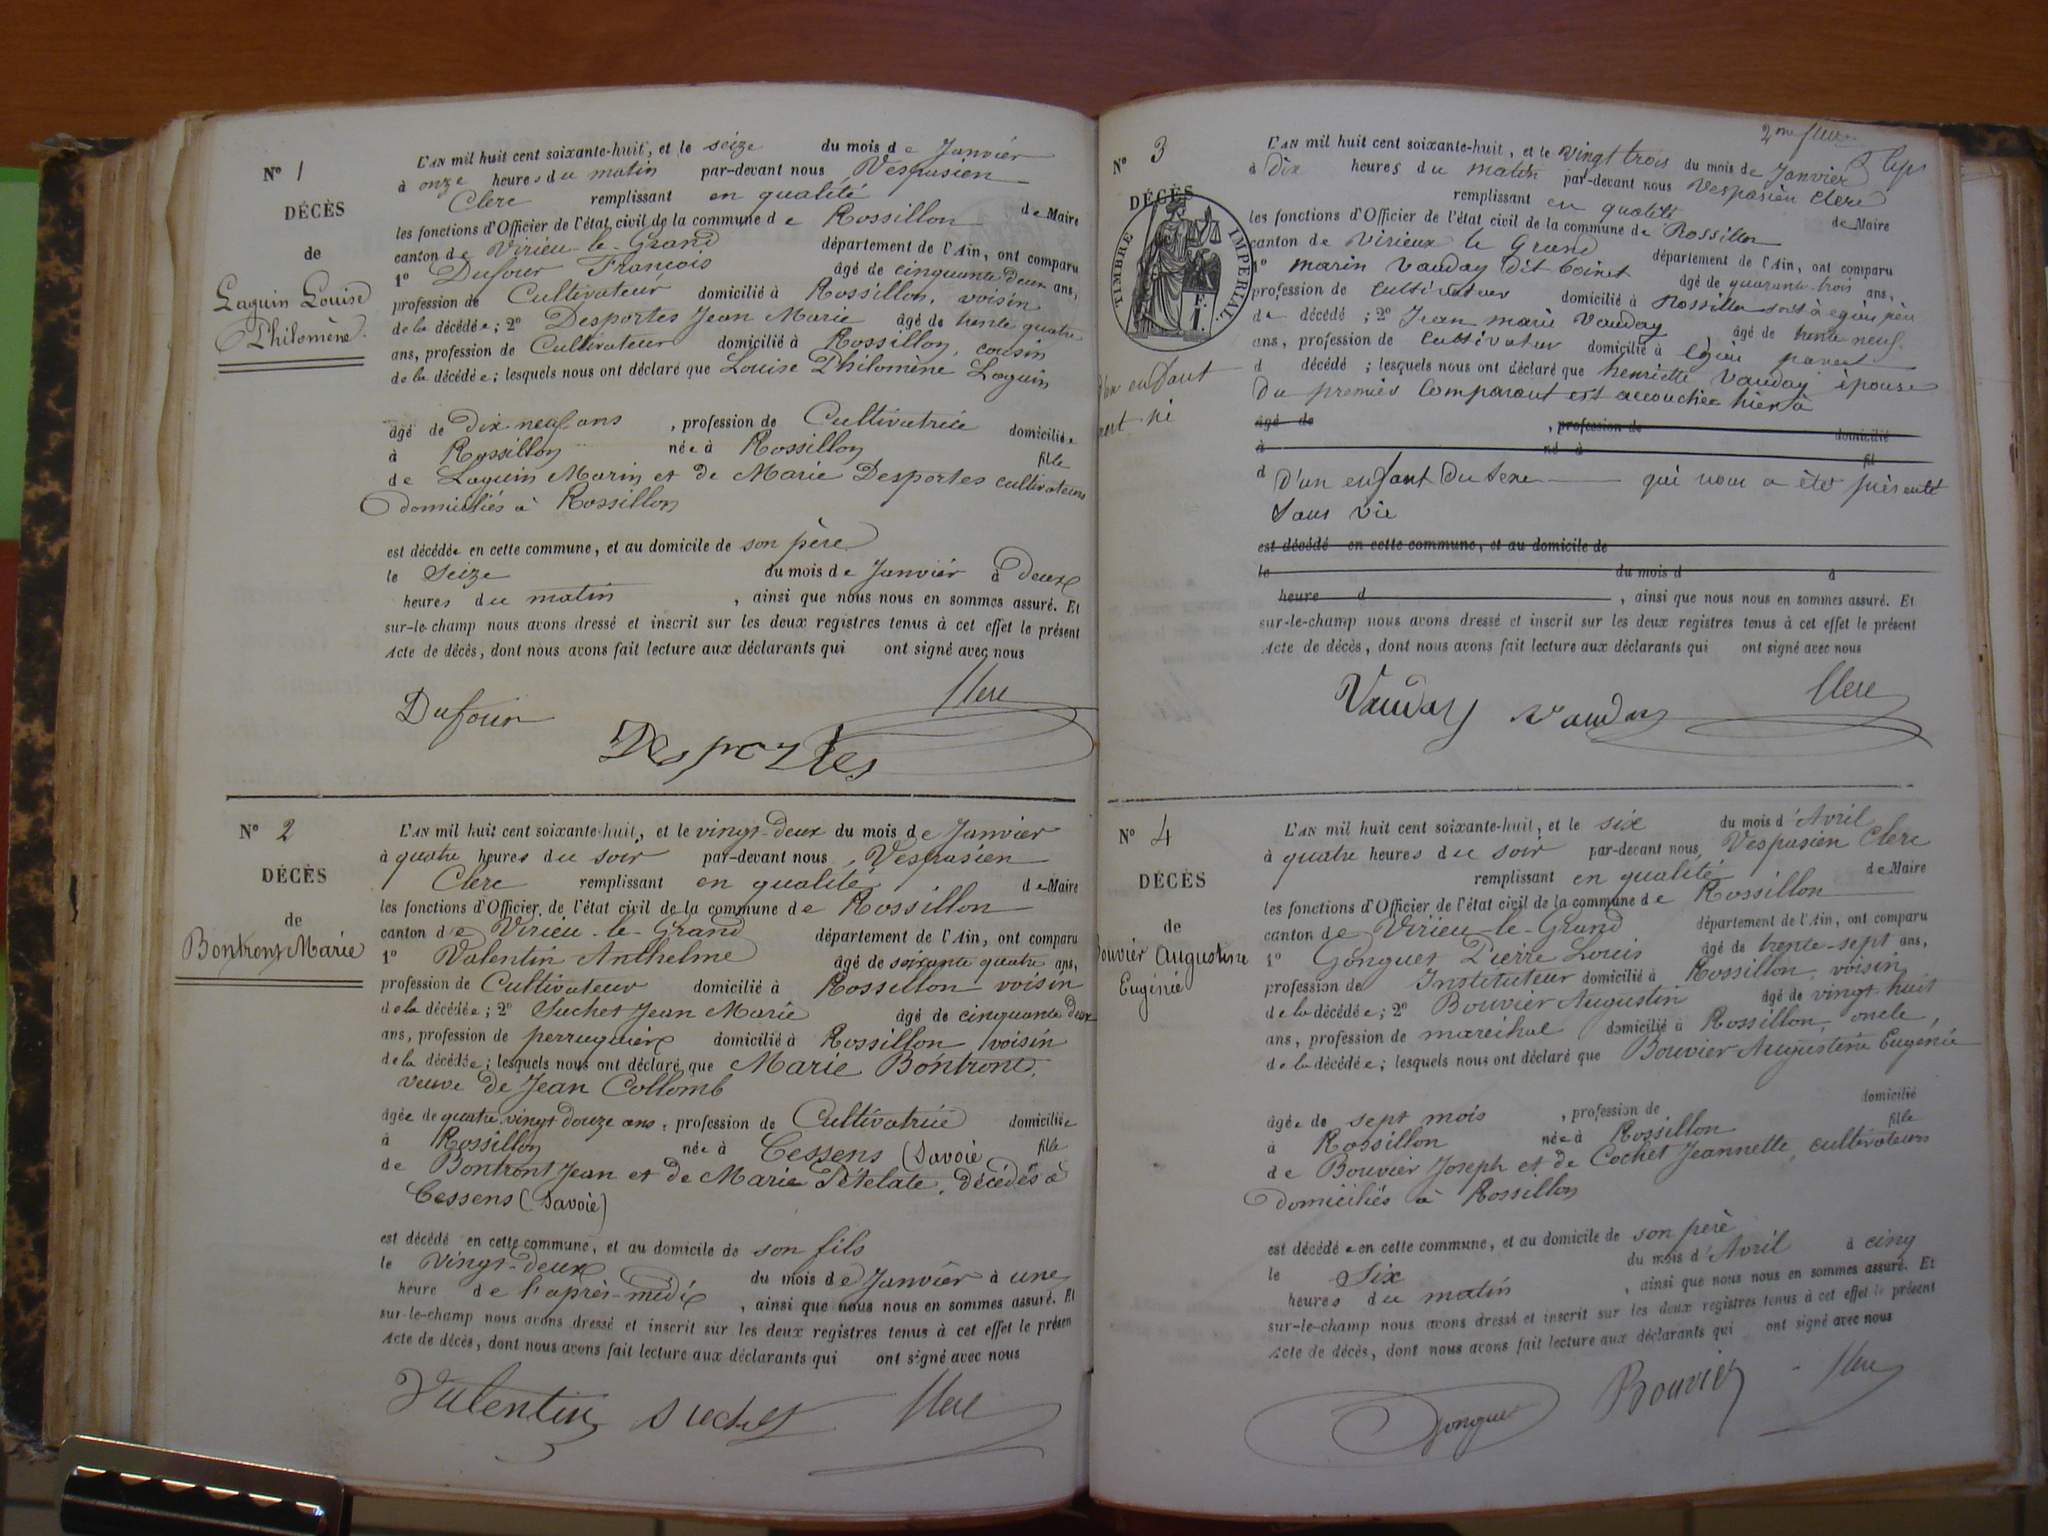 N° 1
DÉCÈS
de
Laguin Louise
Philomène.
L'AN mil huit cent soixante-huit, et le seize du mois de Janvier
à onze heures du matin par-devant nous Vespasien
Clerc remplissant en qualité de Maire
les fonctions d'Officier de l'état civil de la commune de Rossillon
canton de Virieu-le-Grand département de l'Ain, ont comparu
1° Dufour François âgé de cinquante deux ans,
profession de Cultivateur domicilié à Rossillon, voisin
de la décédée; 2° Desportes Jean Marie âgé de trente quatre
ans, profession de Cultivateur domicilié à Rossillon, cousin
de la décédée; lesquels nous ont déclaré que Louise Philomène Laguin
âgé de dix neuf ans, profession de Cultivatrice domiciliée
à Rossillon née à Rossillon fille
de Laguin Marin et de Marie Desportes cultivateurs
domiciliés à Rossillon
est décédée en cette commune, et au domicile de son père
le Seize du mois de Janvier à deux
heures du matin, ainsi que nous nous en sommes assuré. Et
sur-le-champ nous avons dressé et inscrit sur les deux registres tenus à cet effet le présent
Acte de décès, dont nous avons fait lecture aux déclarants qui ont signé avec nous
Dufour Clerc
Desportes
N° 2
DÉCÈS
de
Bontront Marie
L'AN mil huit cent soixante-huit, et le vingt-deux du mois de Janvier
à quatre heures du soir par-devant nous, Vespasien
Clerc remplissant en qualité de Maire
les fonctions d'Officier de l'état civil de la commune de Rossillon
canton de Virieu-le-Grand département de l'Ain, ont comparu
1° Valentin Anthelme âgé de soixante quatre ans,
profession de Cultivateur domicilié à Rossillon voisin
de la décédée; 2° Suchet Jean Marie âgé de cinquante deux
ans, profession de perruquier domicilié à Rossillon voisin
de la décédée; lesquels nous ont déclaré que Marie Bontront,
veuve de Jean Collomb
âgée de quatre-vingt douze ans, profession de Cultivatrice domiciliée
à Rossillon née à Cessens (Savoie fille
de Bontront Jean et de Marie Pételate, décédés à
Cessens (Savoie)
est décédé en cette commune, et au domicile de son fils
le vingt-deux du mois de Janvier à une
heure de l'après-midi, ainsi que nous nous en sommes assuré. Et
sur-le-champ nous avons dressé et inscrit sur les deux registres tenus à cet effet le présen
Acte de décès, dont nous avons fait lecture aux déclarants qui ont signé avec nous
Valentin Suchet Clerc
2me
N° 3
DÉCÈS
TIMBRE IMPÉRIAL
F. I.
d'un enfant
mort né
L'AN mil huit cent soixante-huit, et le vingt trois du mois de Janvier
à Dix heures du matin par-devant nous Vespasien Clerc
remplissant en qualité de Maire
les fonctions d'Officier de l'état civil de la commune de Rossillon
canton de Virieux le Grand département de l'Ain, ont comparu
1° marin Vauday dit âgé de quarante-trois ans,
profession de cultivateur domicilié à Rossillon
de décédé; 2° Jean marie Vauday âgé de trente neuf
ans, profession de cultivateur domicilié à parent
d décédé; lesquels nous ont déclaré que henriette Vauday épouse
Du premier Comparant est accouchée hier à
âgé de, profession de domicilié
à né à fil
d D'un enfant Du Sexe qui nous a été présenté
Sans vie
est décédé en cette commune, et au domicile de
le du mois d à
heure d, ainsi que nous nous en sommes assuré. Et
sur-le-champ nous avons dressé et inscrit sur les deux registres tenus à cet effet le présent
Acte de décès, dont nous avons fait lecture aux déclarants qui ont signé avec nous
Vauday Vauday Clerc
N° 4
DÉCÈS
de
Bouvier Augustine
Eugénie
L'AN mil huit cent soixante-huit, et le six du mois d'Avril
à quatre heures du soir par-devant nous, Vespasien Clerc
remplissant en qualité de Maire
les fonctions d'Officier de l'état civil de la commune de Rossillon
canton de Virieu-le-Grand département de l'Ain, ont comparu
1° Gonguet Pierre Louis âgé de trente-sept ans,
profession de Instituteur domicilié à Rossillon, voisin
de la décédée; 2° Bouvier Augustin âgé de vingt-huit
ans, profession de maréchal domicilié à Rossillon, oncle,
de la décédée; lesquels nous ont déclaré que Bouvier Augustine Eugénie
âgée de sept mois, profession de domicilié
à Rossillon née à Rossillon fille
de Bouvier Joseph et de Cochet Jeannette, cultivateurs
domiciliés à Rossillon
est décédée en cette commune, et au domicile de son père
le Six du mois d'Avril à cinq
heures du matin, ainsi que nous nous en sommes assuré. Et
sur-le-champ nous avons dressé et inscrit sur les deux registres tenus à cet effet le présent
Acte de décès, dont nous avons fait lecture aux déclarants qui ont signé avec nous
Gonguet Bouvier Clerc